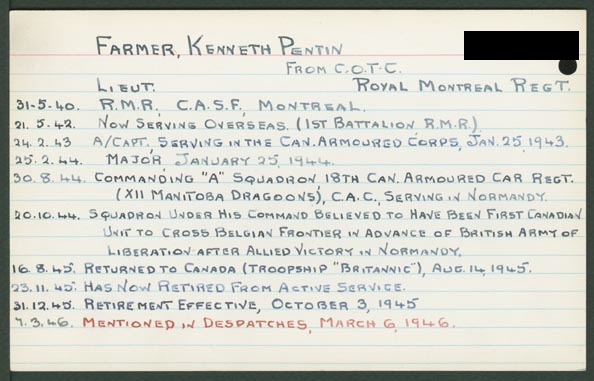 FARMER, KENNETH PENTIN
FROM C.O.T.C.
LIEUT. ROYAL MONTREAL REGT.
31-5-40. R.M.R. C.A.S.F. MONTREAL.
21.5-42. NOW SERVING OVERSEAS. (1ST BATTALION R.M.R.)
24.2.43 A/CAPT. SERVING IN THE CAN. ARMOURED CORPS, JAN. 25, 1943.
25.2.44. MAJOR JANUARY 25, 1944.
30.8.44. COMMANDING "A" SQUADRON 18TH CAN. ARMOURED CAR REGT.
(XII MANITOBA DRAGOONS), C.A.C., SERVING IN NORMANDY.
20.10.44. SQUADRON UNDER HIS COMMAND BELIEVED TO HAVE BEEN FIRST CANADIAN
UNIT TO CROSS BELGIAN FRONTIER IN ADVANCE OF BRITISH ARMY OF
LIBERATION AFTER ALLIED VICTORY IN NORMANDY.
16.8.45. RETURNED TO CANADA (TROOPSHIP "BRITANNIC"), AUG. 14, 1945.
23.11.45. HAS NOW RETIRED FROM ACTIVE SERVICE.
31.12.45. RETIREMENT EFFECTIVE, OCTOBER 3, 1945
7.3.46. MENTIONED IN DESPATCHES, MARCH 6, 1946.